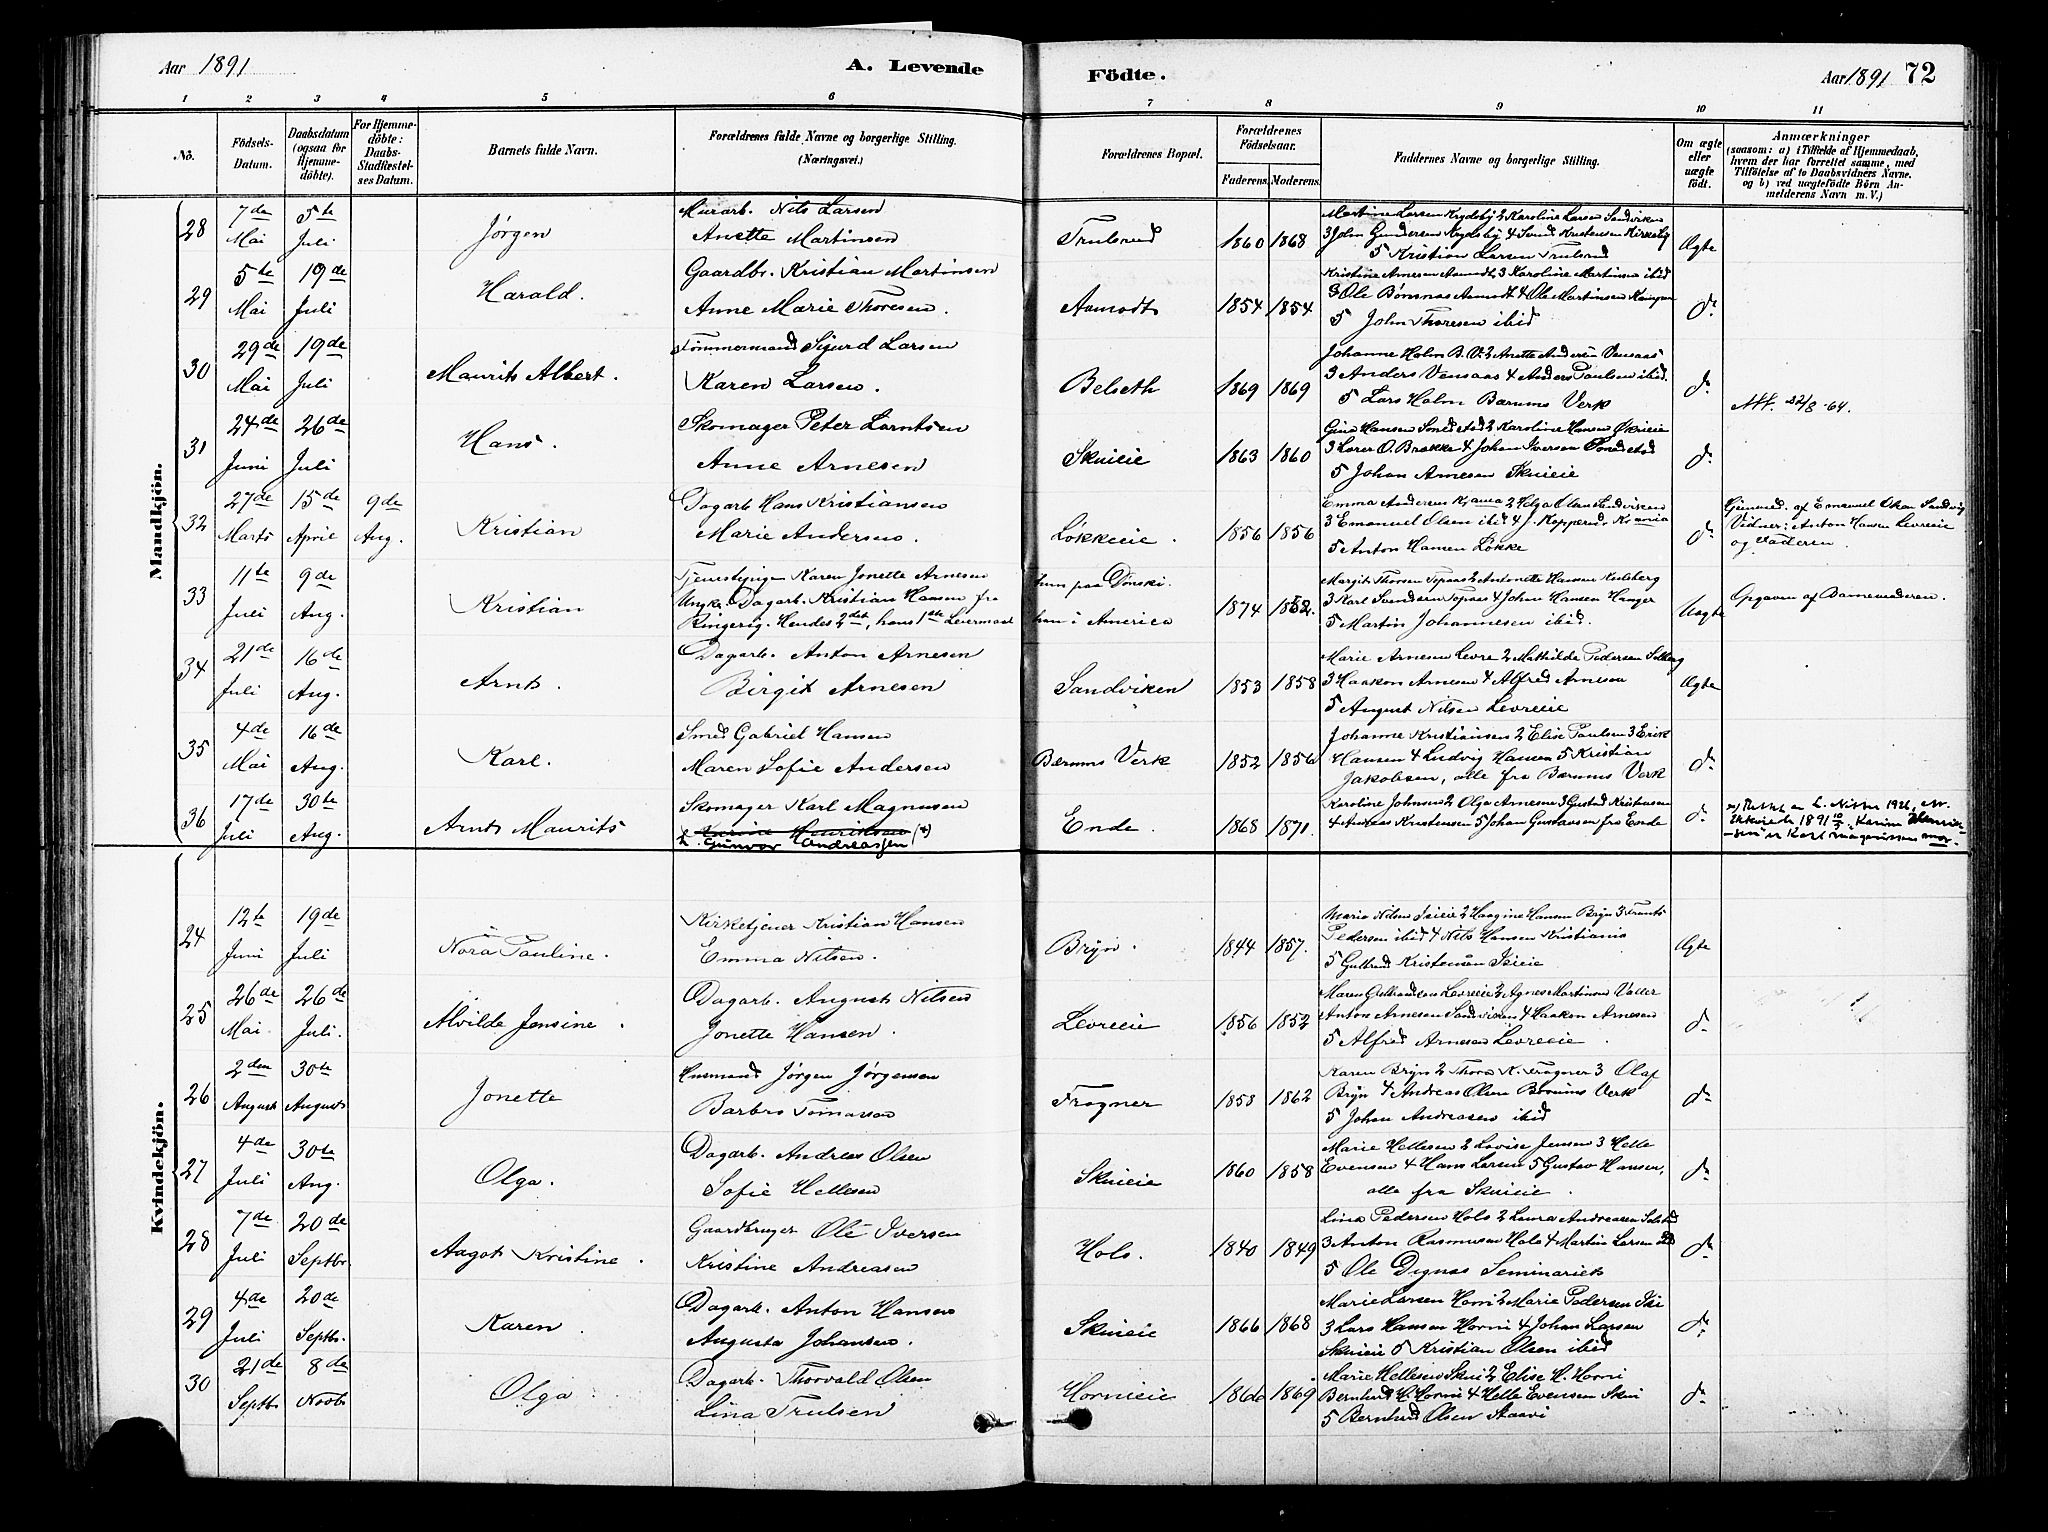 Aar 1891
A. Levende
Födte.
Aar 1891 72
1 2 3 4 5 6 7 8 9 10 11
No.
Födsels-
Datum.
Daabsdatum
(ogsaa for
Hjemme-
döbte).
For Hjemme-
döbte:
Daabs-
Stadfæstel-
ses Datum.
Barnets fulde Navn.
Forældrenes fulde Navne og borgerlige Stilling.
(Næringsvei.)
Forældrenes Bopæl.
Forældrenes
Födselsaar.
Faderens. Moderens.
Faddernes Navne og borgerlige Stilling.
Om ægte
eller
uægte
født.
Anmærkninger
(saasom: a) i Tilfælde af Hjemmedaab,
hvem der har forrettet samme, med
Tilföielse af to Daabsvidners Navne.
og b) ved uægtefödte Börn An-
melderens Navn m. V.)
Mandkjön.
28
7de Mai
5te Juli
Jørgen
Murarb. Nils Larsen
Anette Martinsen
Trulsrud
1860 1868
Martine Larsen Rydsby 2 Karoline Larsen Sandviken
3 John Gundersen Rydsby 4 Kristensen Kirkeby
5 Kristian Larsen Trulsrud
Ægte
29
5te Mai
19de Juli
Harald.
Gaardbr. Kristian Martinsen
Anne Marie Thoresen.
Aamodt
1854 1854
Kristine Arnesen Aamodt 3 Karoline Martinsen ibid
3 Ole Bønsnæs Aamodt 4 Ole Martinsen
5 John Thoresen ibid
do
30
29de Mai
19de Juli
Maurits Albert.
Tømmermand Sigurd Larsen
Karen Larsen.
Belseth
1869 1869
Johanne Holm B. V. 2 Anette Andersen Vensaas
3 Anders Vensaas 4 Anders Paulsen ibid.
5 Lars Holm Bærums Verk
do
Att. 22/8-64.
31
24de Juni
26de Juli
Hans.
Skomager Peter Larntsen
Anne Arnesen
Skuieie
1863 1860
Gina Hansen 2 Karoline Hansen Økrieie
3 O. Brække 4 Johan Iversen
5 Johan Arnesen Skuieie
do
32
27de Marts
15de April
9de Aug.
Kristian
Dagarb Hans Kristiansen
Marie Andersen.
Løkkeeie.
1856 1856
Emma Andersen Krania 2 Helga Olsen Sandviken
3 Emanuel Olsen ibid 4 J. Kopperud Krania
5 Anton Hansen Løkke
do
Hjemmed. af Emanuel Olsen Sandvig
Vidner: Anton Hansen Levreeie
og Faderen.
33
11te Juli
9de Aug.
Kristian
Tjenestepige Karen Jonette Arnesen
Ungk. Dagarb. Kristian Hansen fra
Ringerig. Hendes 2det, hans 1ste Leiermaal
hun paa Dønski.
han i America
1874 1852.
Margit Thorsen Tepaas 2 Antonette Hansen
3 Karl Svendsen Tepaas 4 John Hansen Hanger
5 Martin Johannesen ibid.
Uægte
Opgaven af Barnemoderen.
34
21de Juli
16de Aug.
Arnt.
Dagarb. Anton Arnesen
Birgit Arnesen
Sandviken
1853 1858
Marie Arnesen Levre 2 Mathilde Pedersen Solberg
3 Haakon Arnesen 4 Alfred Arnesen
5 August Nilsen Levreeie
Ægte
35
4de Mai
16de Aug.
Karl.
Smed Gabriel Hansen
Maren Sofie Andersen
Bærums Verk
1852 1856
Johanne Kristiansen 2 Elise Paulsen 3 Erik
Hansen 4 Ludvig Hansen 5 Kristian
Jakobsen, alle fra Bærums Verk
do
36
17de Juli
30te Aug.
Arnt Maurits
Skomager Karl Magnusen
Karine Henriksen (*)
Gunvor Andreassen
Ende.
1868 1871.
Karoline Johnsen 2 Olga Arnesen 3 Gustad Kristensen
4 Andreas Kristensen 5 Johan Gustavsen fra Ende
do
24
12te Juni
19de Juli
Nora Pauline.
Kirketjener Kristian Hansen
Emma Nilsen.
Bryn.
1844 1857.
Maria Nilsen Isieie 2 Haagine Hansen Bryn 3 Frants
Pedersen ibid 4 Nils Hansen Kristiania
5 Gulbrand Kristensen Isieie
Ægte
Kvindekjön.
25
26de Mai.
26de Juli.
Alvilde Jensine.
Dagarb. August Nilsen
Jonette Hansen.
Levreeie
1856 1852
Maren Gulbrandsen Levreeie 2 Agnes Martinsen Valler
Anton Arnesen Sandviken 4 Haakon Arnesen
5 Alfred Arnesen Levreeie.
do
26
2den August
30te August
Jonette
Husmand Jørgen Jørgensen
Barbro Tomassen
Frogner
1858 1862
Karen Bryn 2 Thora K. Frogner 3 Olaf
Bryn 4 Andreas Olsen Bærums Verk
5 Johan Andreasen ibid
do
27
4de Juli
30te Aug.
Olga.
Dagarb. Andreas Olsen
Sofie Hellesen
Skuieie
1860 1858
Marie Hellesen 2 Lovise Jensen 3 Helle
Evensen 4 Hans Larsen 5 Gustav Hansen,
alle fra Skuieie.
do
28
7de Juli
20de Septbr.
Aagot Kristine.
Gaardbruger Ole Iversen
Kristine Andreasen
Hols.
1840 1849
Lina Pedersen Hols 2 Laura Andreasen
3 Anton Rasmusen Hols 4 Martin Larsen ibid
5 Ole Dignæs Seminariet
do
29
4de Juli
20de Septbr.
Karen.
Dagarb. Anton Hansen
Augusta Johansen.
Skuieie
1866 1868
Marie Larsen Horni 2 Marie Pedersen Isi
3 Lars Hansen Horni 4 Johan Larsen
Skuieie 5 Kristian Olsen ibid
do
30
21de Septbr
8de Novbr
Olga
Dagarb. Thorvald Olsen
Lina Trulsen
Hornieie
1866 1869
Marie Hellesen Skui 2 Elise H. Horni
Bernhard H. Horni 4 Helle Evensen Skui
5 Bernhard Olsen Staavi
do